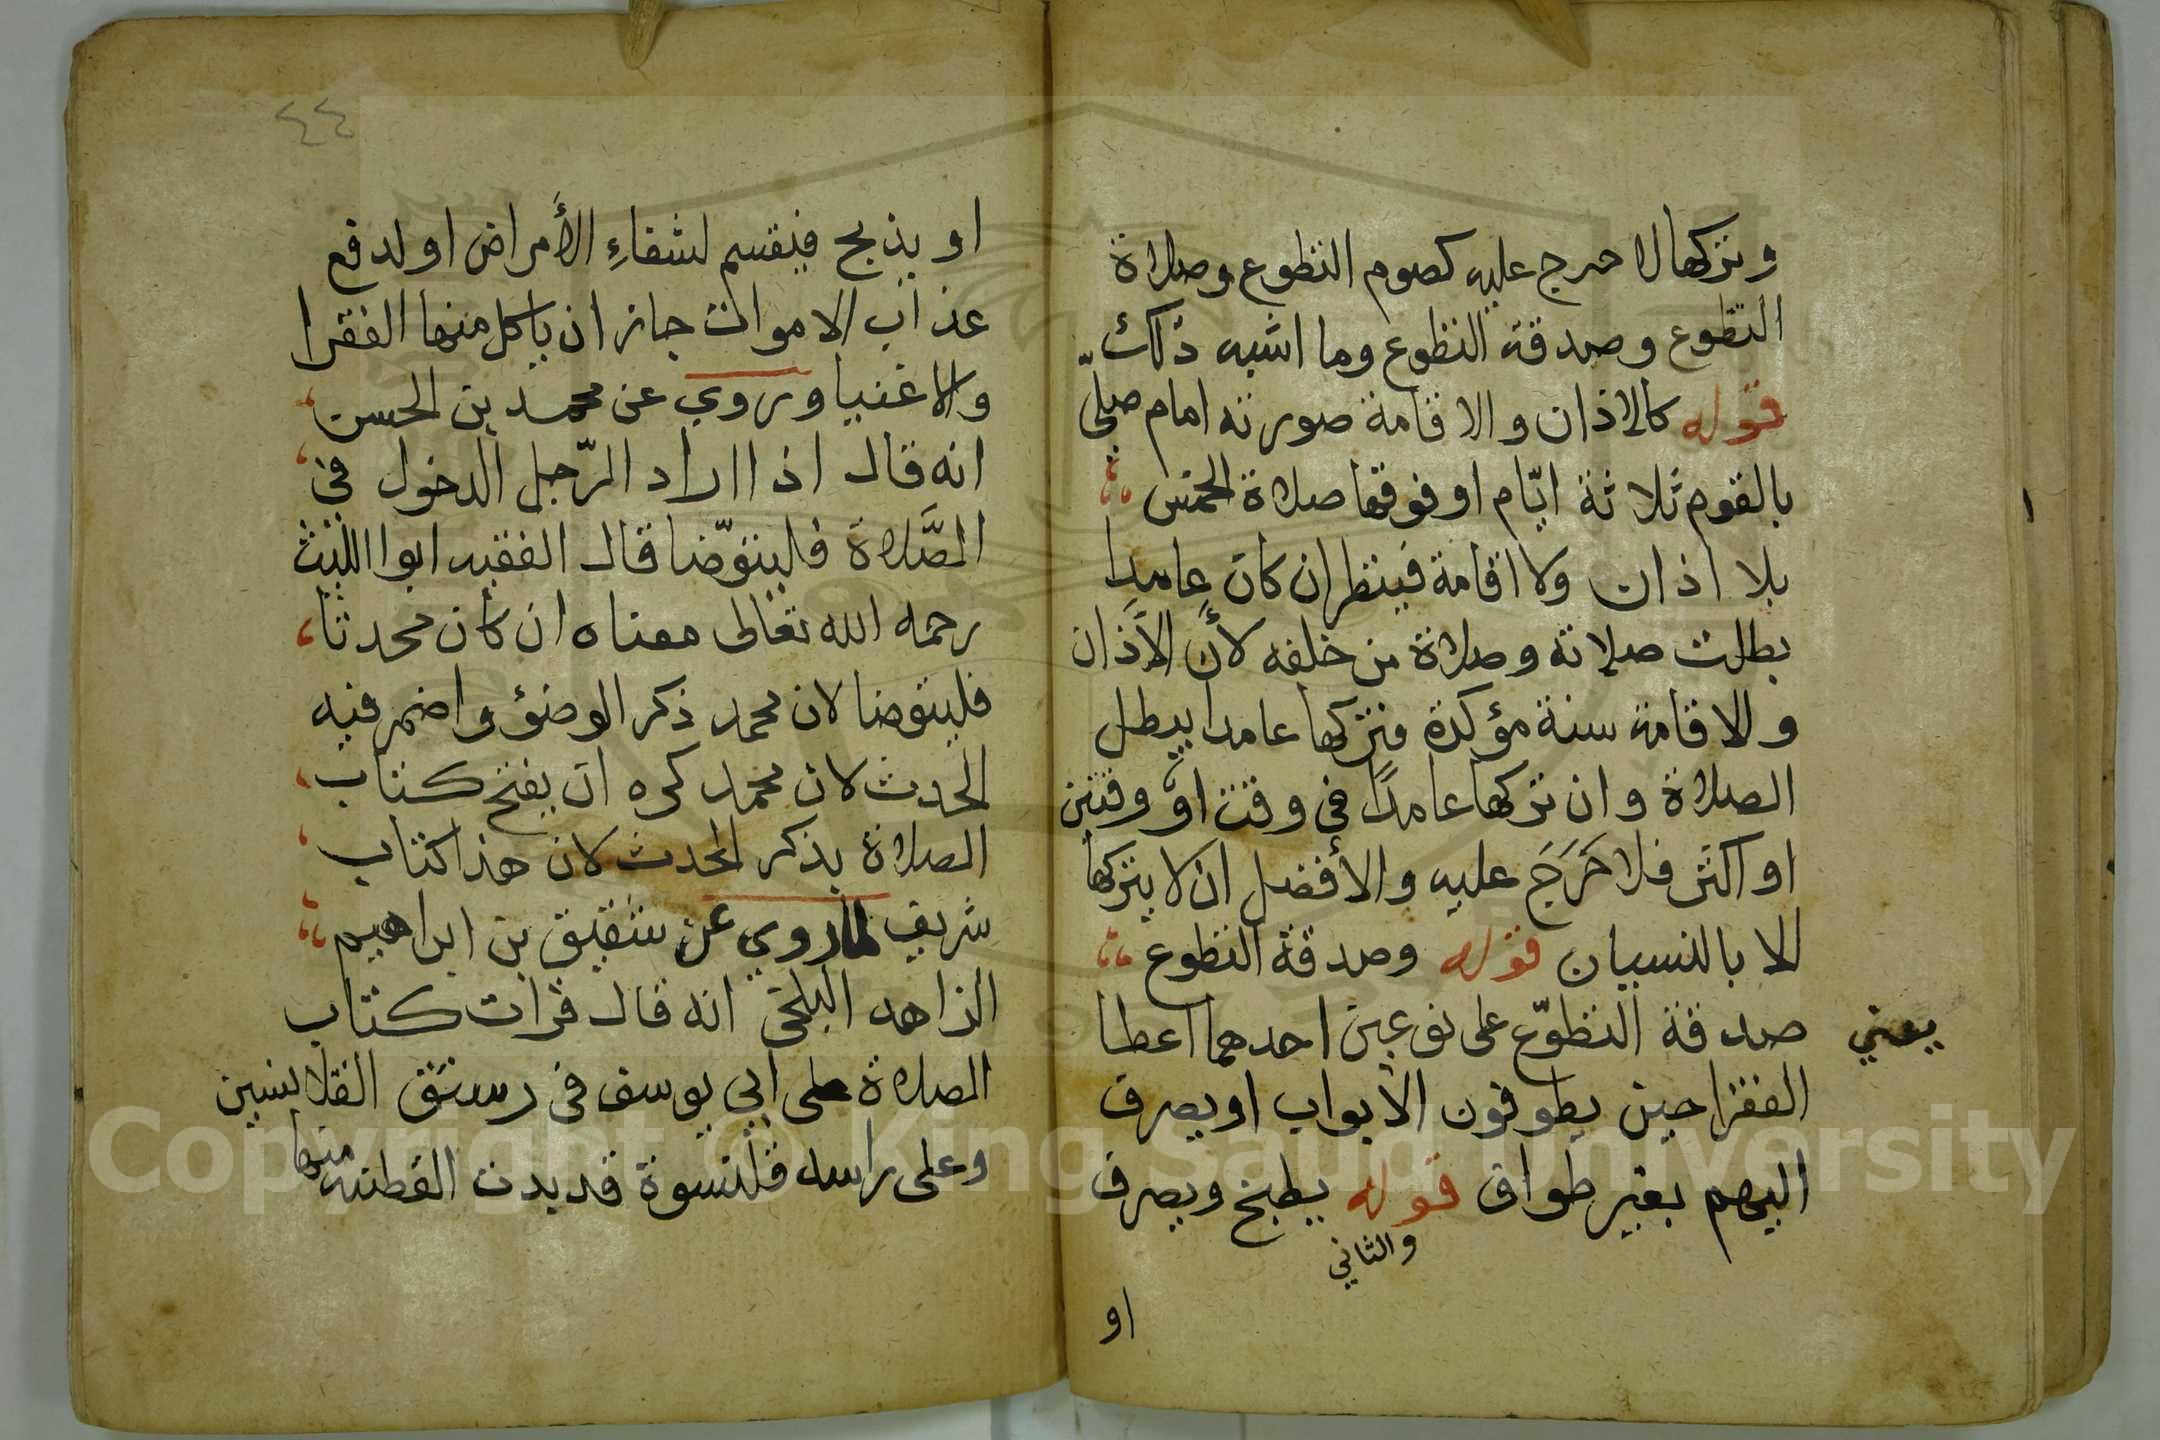 وتركها لا حرج عليه كصوم التطوع وصلاة
التطوع وصدقة التطوع وما اشبه ذلك
قوله كالاذان والاقامة صورته امام صلّى
بالقوم ثلاثة ايّام او فوقها صلاة الخمس
بلا اذان ولا اقامة فينظر ان كان عامدا
بطلت صلاته وصلاة من خلفه لأن الأذان
والاقامة سنة مؤكدة فتركها عامدا يبطل
الصلاة وان تركها عامدًا في وقت او وقتين
او اكثر فلا حَرَجَ عليه والأفضل ان لا يتركها
الا بالنسيان قوله وصدقة التطوع
يعني صدقة التطوّع على نوعين احدهما اعطا
الفقرا حين يطوفون الابواب او يصرف
اليهم بغير طواف قوله يطبخ ويصرف
والثاني
او
٤٤
او يذبح فيقسم لشفاءِ الأمراض او لدفع
عذاب الاموات جاز ان ياكل منها الفقرا
والاغنيا وروي عن محمد بن الحسن
انه قال اذا اراد الرّجل الدخول في
الصَّلاة فليتوّضا قال الفقيه ابوا الليث
رحمه الله تعالى معناه ان كان محدثا
فليتوضا لان محمد ذكر الوضؤ واضمر فيه
الحدث لان محمد كره ان يفتح كتاب
الصلاة بذكر الحدث لان هذا كتاب
شريف لما روي عن شقيق بن ابراهيم
الزاهد البلخي انه قال قرات كتاب
الصلاة على ابي يوسف في رستق القلانسين
وعلى راسه قلنسوة قد بدت القطنه منها
Copyright © King Saud University